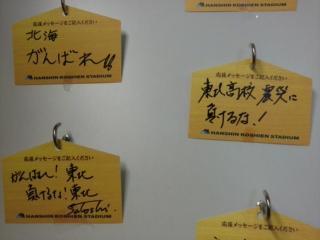 応援メッセージをご記入ください
北海
がんばれ!!
HANSHIN KOSHIEN STADIUM
応援メッセージをご記入ください
東北高校 震災に
負けるな!
HANSHIN KOSHIEN STADIUM
応援メッセージをご記入ください
がんばれ! 東北
負けるな! 東北
Satoshi.
HANSHIN KOSHIEN STADIUM
応援メッセージをご記入ください